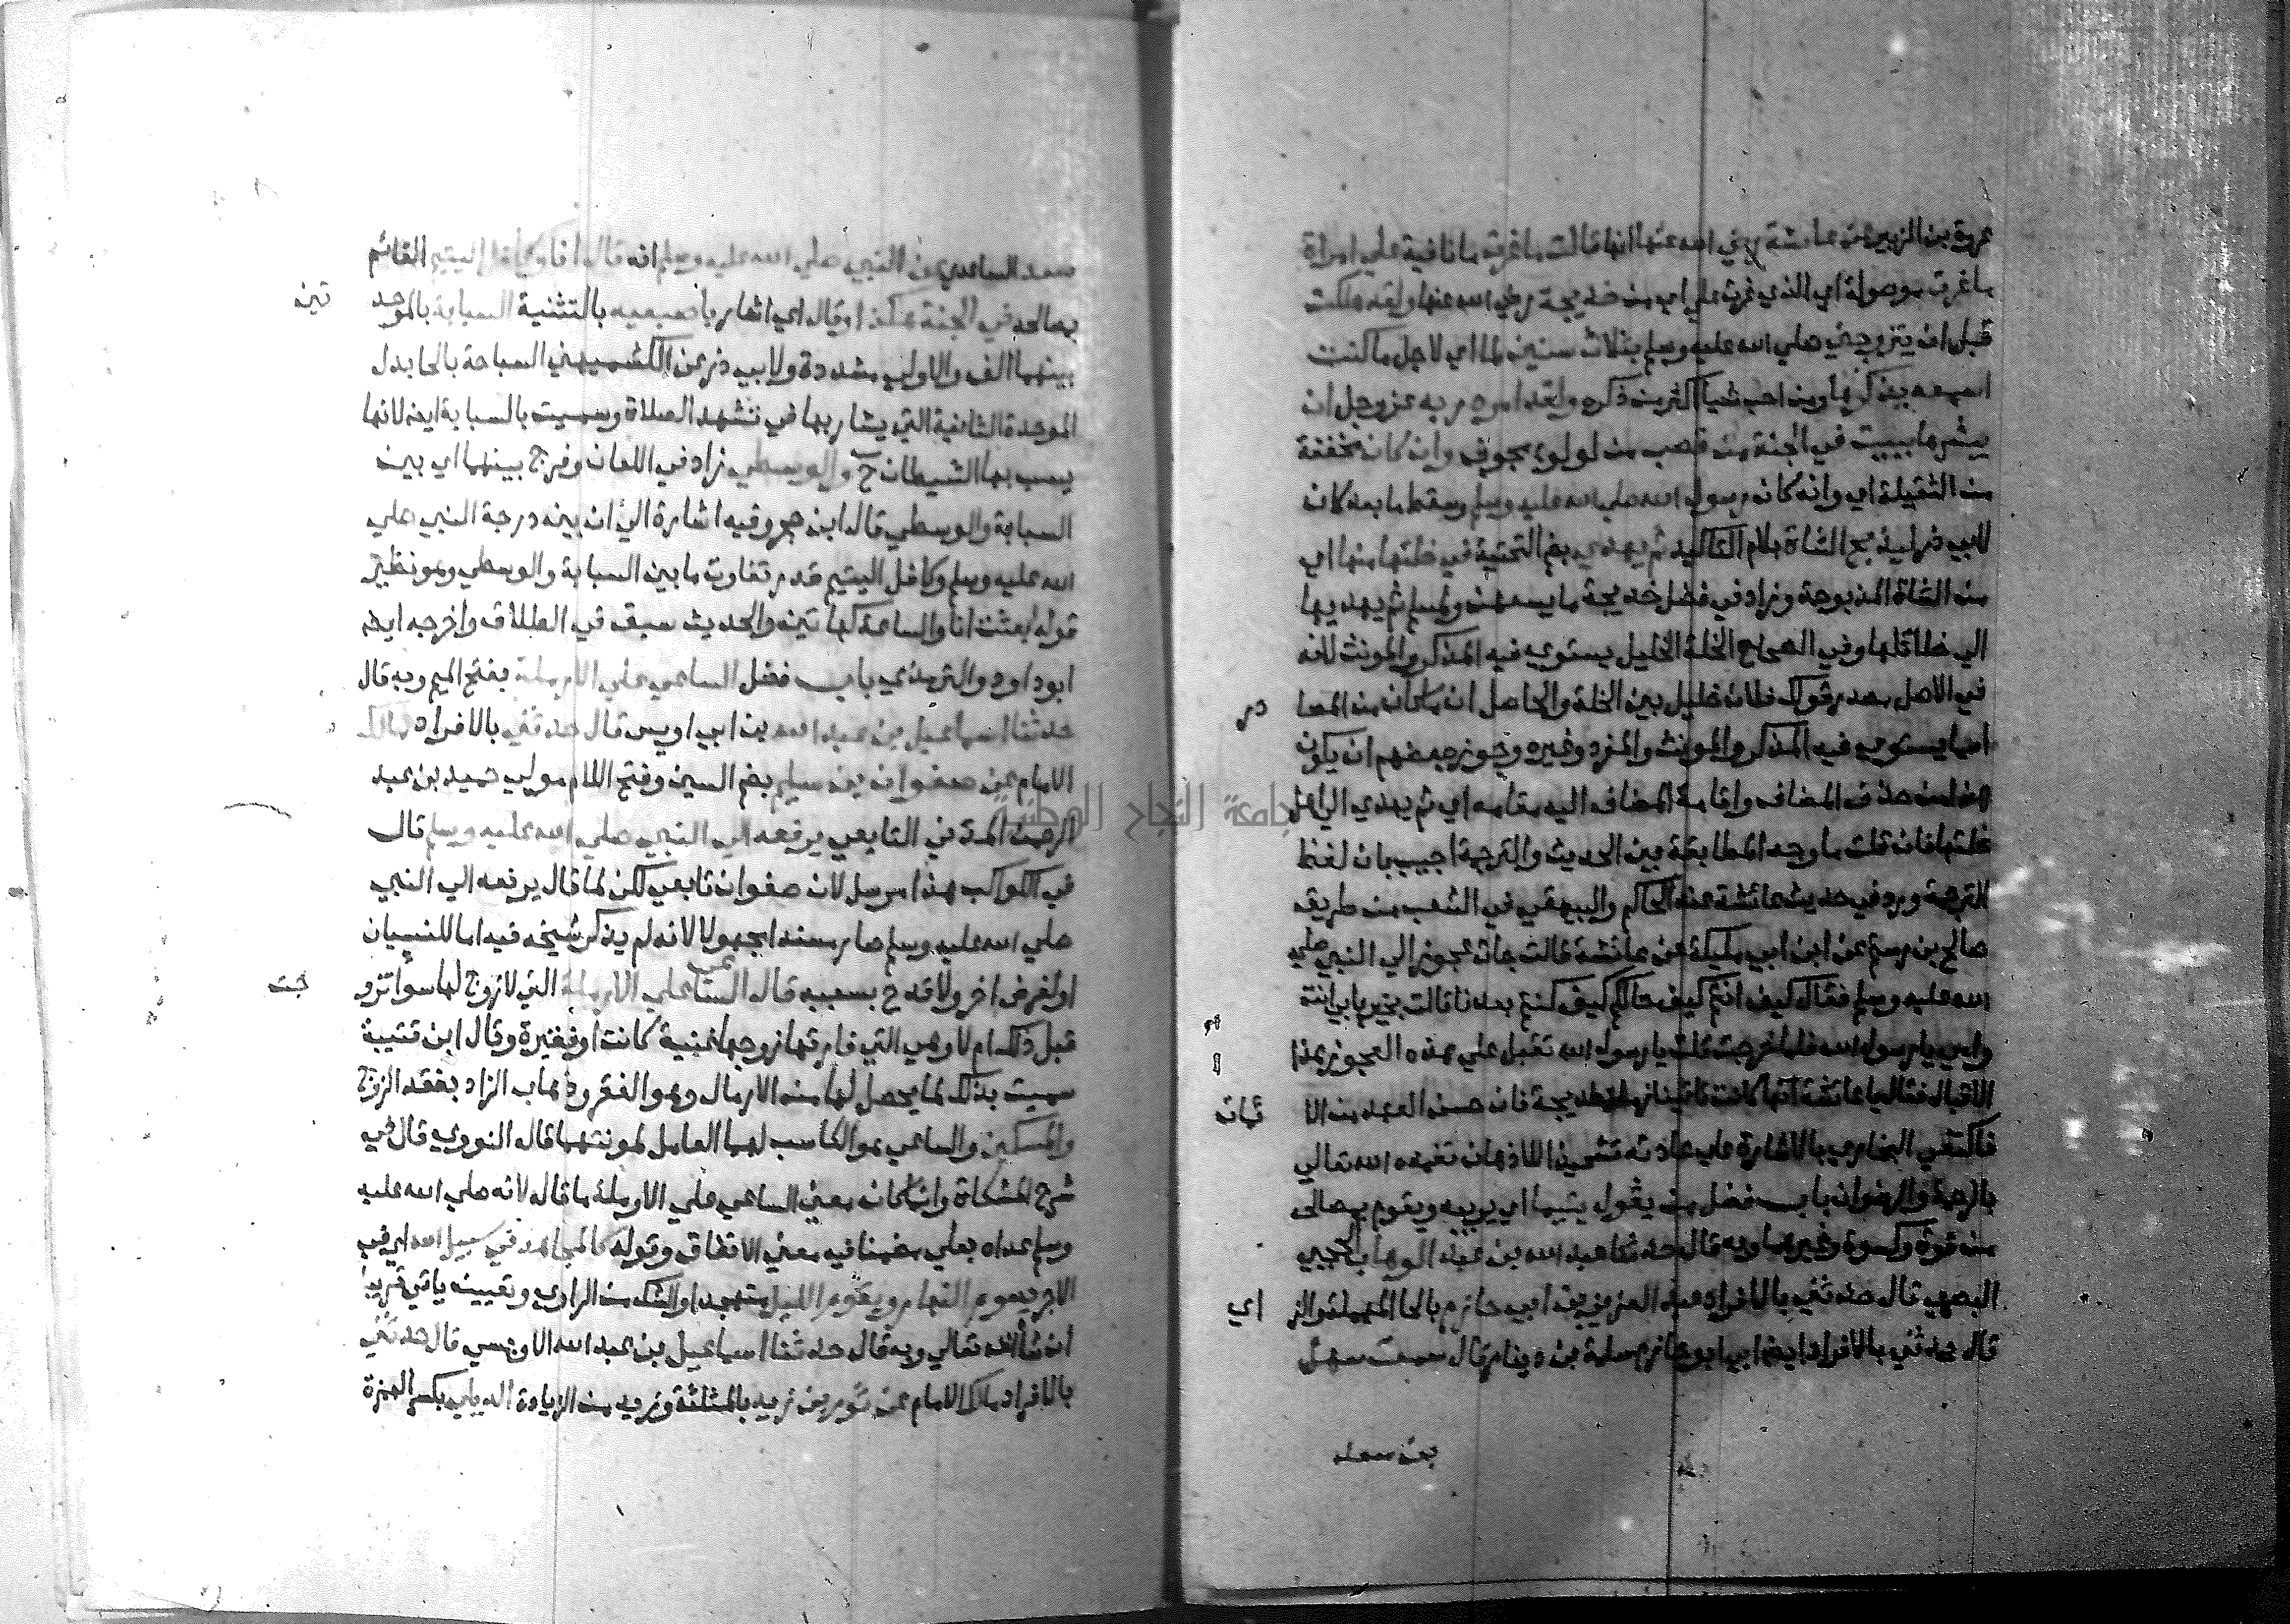 عروة بن الزبير عن عايشة رضي الله عنها انها قالت ما غرت ما نافية علي امراة
ما غرت موصولة اي الذي غرت علي اي من خديجة رضي الله عنها ولقد هلكت
قبل ان يتزوجني صلي الله عليه وسلم بثلاث سنين لما اي لاجل ما كنت
اسمعه يذكرها ومن احب شيا اكثر من ذكره ولقد امره ربه عز وجل ان
يبشرها ببيت في الجنة من قصب من لولوء مجوف وان كان مخففة
من الثقيلة اي وانه كان رسول الله صلي الله عليه وسلم وسقط ما بعد كان
لابي ذر ليذبح الشاة بلام التاكيد ثم يهدي بضم التحتية في خلتها منها اي
من الشاة المذبوحة وزاد في فضل خديجة ما يسعهن ولمسلم ثم يهديها
الي خلائلها وفي الصحاح الخلة الخليل يستوي فيه المذكر والمونث لانه
في الاصل مصدر قولك خلان خليل بين الخلة والحاصل ان ما كان من المصا در
انما يستوي فيه المذكر والمونث والمفرد وغيره وجوز بعضهم ان يكون
هذا من حذف المضاف واقامة المضاف اليه مقامه اي ثم يهدي الي اهل
خلتها فان قلت ما وجه المطابقة بين الحديث والترجمة اجيب بان لفظ
الترجمة ورد في حديث عائشة عند الحاكم والبيهقي في الشعب من طريق
صالح بن رستم عن ابن ابي مليكة عن عائشة قالت جات عجوز الي النبي صلي
الله عليه وسلم فقال كيف انتم كيف حالكم كيف كنتم بعدنا قالت بخير بابي انت
وامي يا رسول الله فلما خرجت قلت يا رسول الله تقبل علي هذه العجوز هذا
الاقبال فقال يا عائشة انها كانت تاتينا زمان خديجة فان حسن العهد من الا يمان
فاكتفي البخاري بالاشارة علي عادته تشحيذا للاذهان تغمده الله تعالي
بالرحمة والرضوان باب فضل من يعول يتيما اي يربيه ويقوم بمصالحه
من قوة وكسوة وغيرهما وبه قال حدثنا عبد الله بن عبد الوهاب الحجبي
البصري قال حدثني بالافراد عبد العزيز بن ابي حازم بالحا المهملة والز اي
قال حدثني بالافراد ايضا ابي ابو حازم سلمة بن دينار قال سمعت سهل
بن سعد
سعد الساعدي عن النبي صلي الله عليه وسلم انه قال انا وكافل اليتيم القائم
بمصالحه في الجنة هكذا وقال اي اشار باصبعيه بالتثنية السبابة بالموحد تين
بينهما الف والاولي مشددة ولابي ذر عن الكشميهني السباحة بالحا بدل
الموحدة الثانية التي يشار بها في تشهد الصلاة وسميت بالسبابة ايض لانها
يسب بها الشيطان ح والوسطي زاد في اللعان وفرج بينهما اي بين
السبابة والوسطي قال ابن حجر وفيه اشارة الي ان بين درجة النبي صلي
الله عليه وسلم وكافل اليتيم قدر تفاوت ما بين السبابة والوسطي وهو نظير
قوله بعثت انا والساعة كهاتين والحديث سبق في الطلاق واخرجه ايض
ابو داود والترمذي باب فضل الساعي علي الارملة بفتح الميم وبه قال
حدثنا اسماعيل بن عبد الله بن ابي اويس قال حدثني بالافراد مالك
الامام عن صفوان بن سليم بضم السين وفتح اللام مولي حميد بن عبد
الرحمن المدني التابعي يرفعه الي النبي صلي الله عليه وسلم قال
في الكواكب هذا مرسل لان صفوان تابعي لكن لما قال يرفعه الي النبي
صلي الله عليه وسلم صار مسندا مجهولا لانه لم يذكر شيخه فيه اما للنسيان
او لغرض اخر ولا قدح بسببه قال الساعي علي الارملة التي لا زوج لها سوا تزو جت
قبل ذلك ام لا وهي التي فارقها زوجها غنية كانت او فقيرة وقال ابن قتيبة
سميت بذلك لما يحصل لها من الارمال وهو الفقر وذهاب الزاد بفقد الزوج
والمسكين والساعي هو الكاسب لهما العامل لمونتهما قاله النووي قال في
شرح المشكاة وانما كان معني الساعي علي الارملة ما قاله لانه صلي الله عليه
وسلم عداه بعلي مضمنا فيه معني الانفاق وقوله كالمجاهد في سبيل الله اي في
الاجر يصوم النهار ويقوم الليل متهجدا والشك من الراوي وتعيينه ياتي قريبا
ان شا الله تعالي وبه قال حدثنا اسماعيل بن عبد الله الاويسي قال حدثني
بالافراد مالك الامام عن ثور بن زيد بالمثلثة وزيد من الزيادة الديلي بكسر الهمزة
جامعة النجاح الوطنية